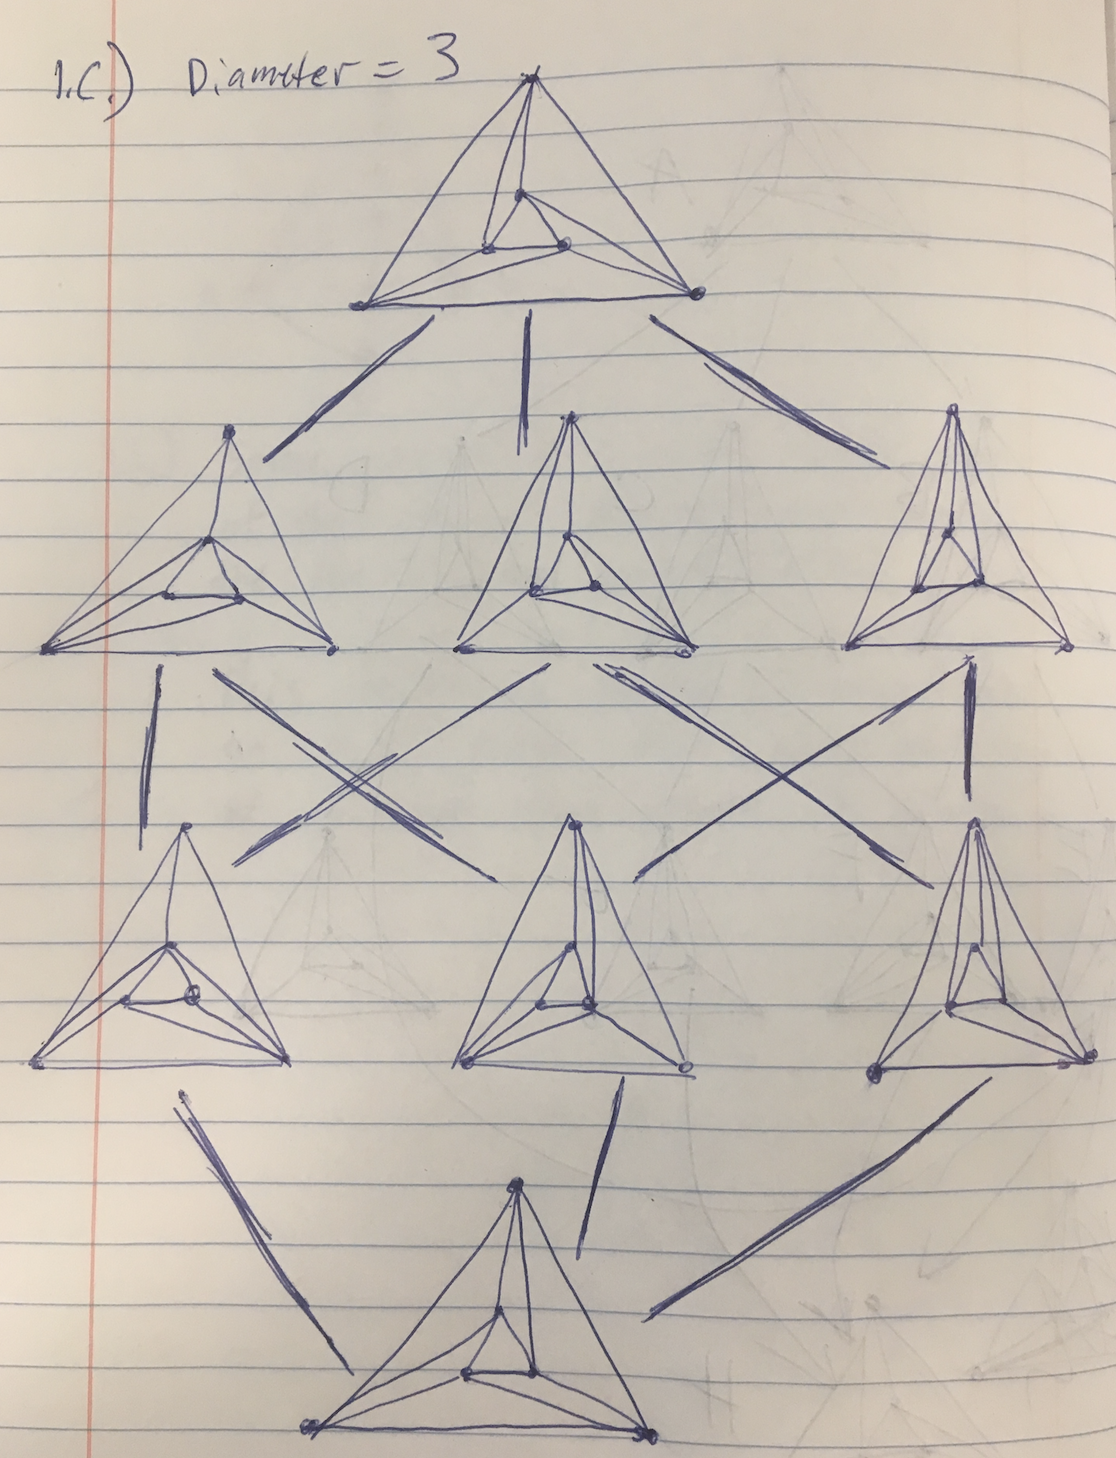 1.C.) Diameter = 3